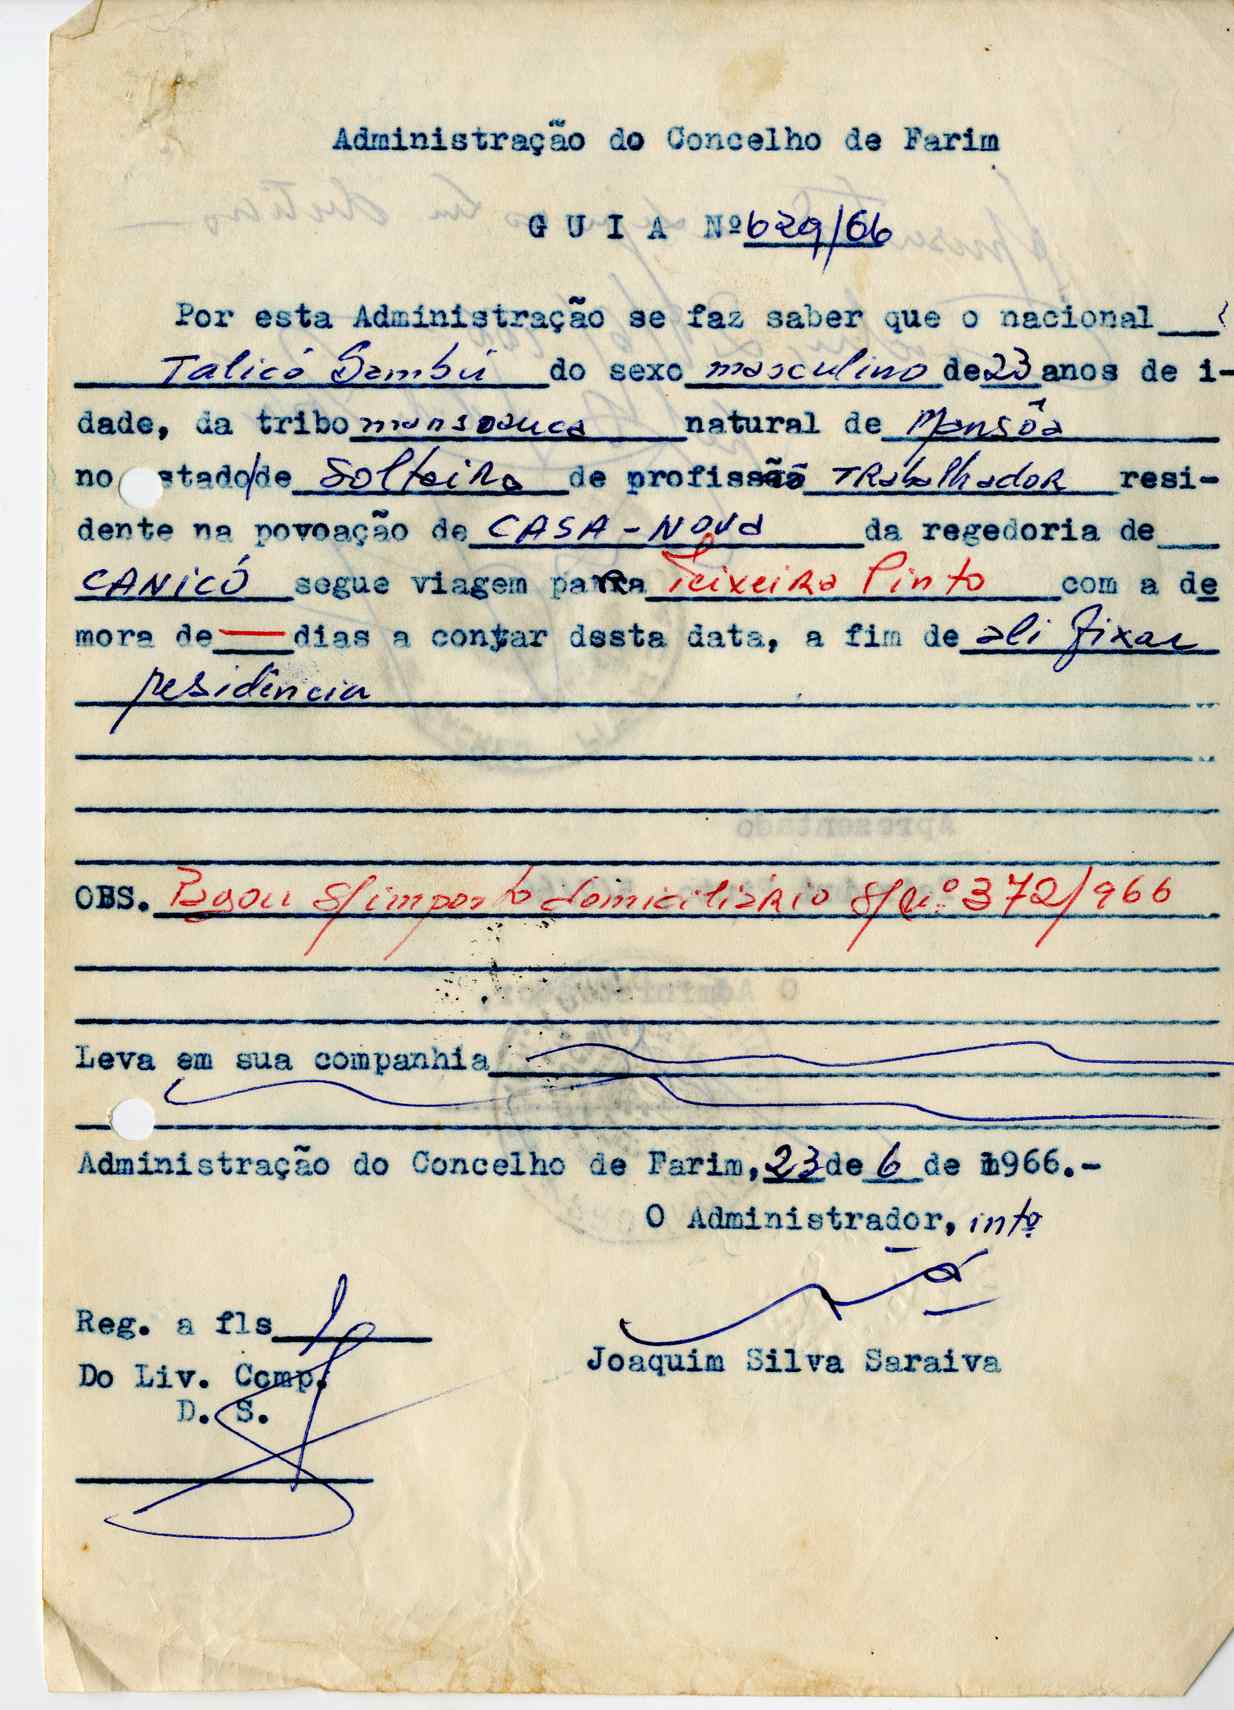 Administração do Concelho de Farim
G U I A Nº 629/66
Por esta Administração se faz saber que o nacional
Talicó Sambú do sexo masculino de 23 anos de i-
dade, da tribo mansoanca natural de Mansôa
no stado/de Solteiro de profissão TRabalhadoR resi-
dente na povoação de CASA-NOVA da regedoria de
CANICÓ segue viagem paRa Teixeira Pinto com a de
mora de — dias a contar desta data, a fim de ali fixar
residência
OBS. Pagou s/imposto domiciliário s/ 372/966
Leva em sua companhia
Administração do Concelho de Farim, 23 de 6 de 1966.-
O Administrador, intº
Reg. a fls
Joaquim Silva Saraiva
Do Liv. Comp.
D. S.
Apresentado
O Administrador